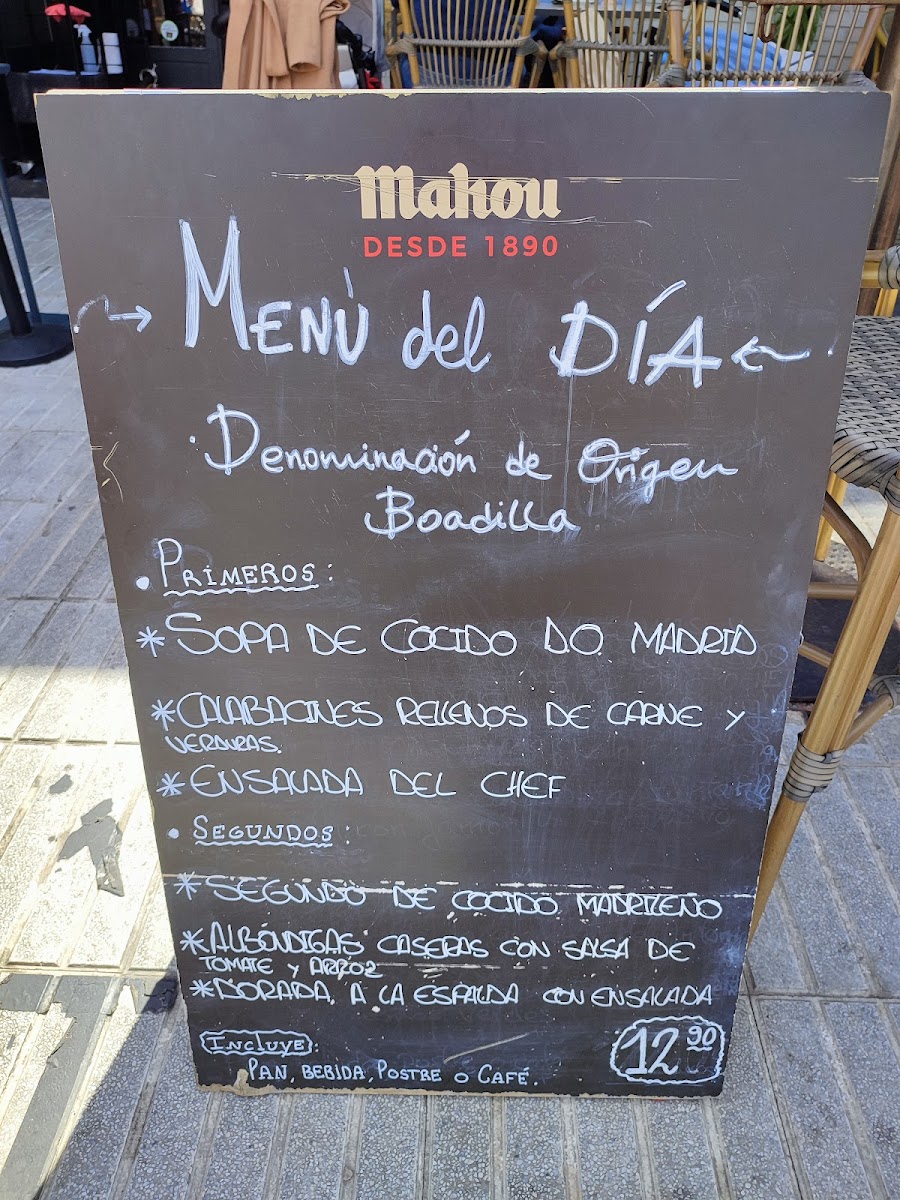 Mahou
DESDE 1890
MENÙ del DÍA
Denominación de Origen
Boadilla
PRIMEROS:
* SOPA DE COCIDO D.O. MADRID
* CALABACINES RELLENOS DE CARNE Y
VERDURAS.
* ENSALADA DEL CHEF
SEGUNDOS:
* SEGUNDO DE COCIDO MADRILENO
* ALBÓNDIGAS CASERAS CON SALSA DE
TOMATE Y ARROZ
* DORADA A LA ESPALDA CON ENSALADA
INCLUYE:
PAN, BEBIDA, POSTRE O CAFÉ.
12 90